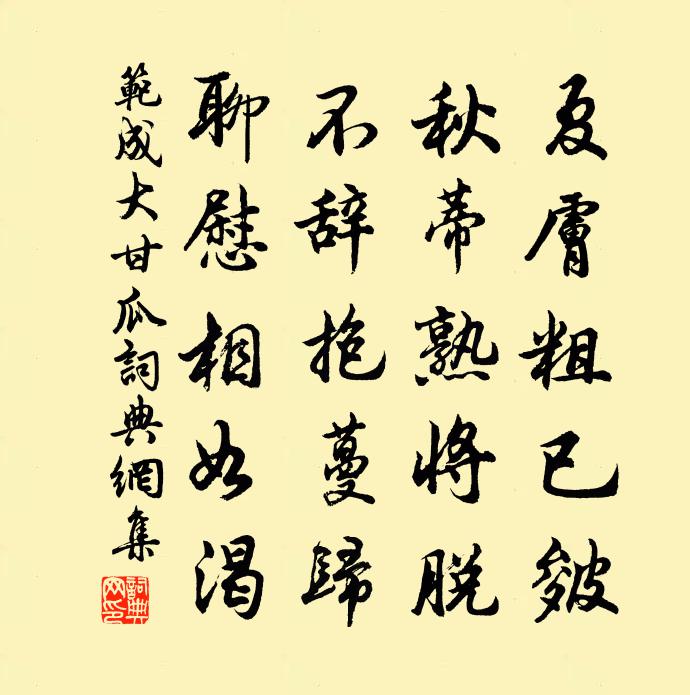 夏膚粗已皴
秋蒂熟將脫
不辞抱蔓歸
聊慰相如渴
範成大甘瓜詞典網集
詞典網印